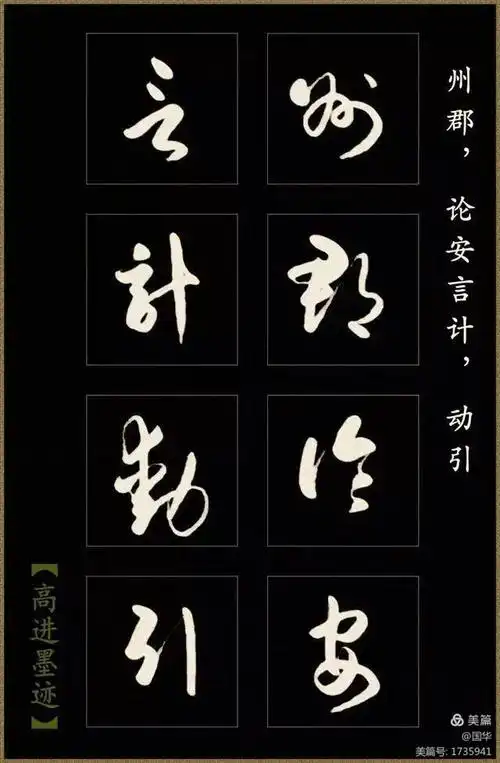 州郡，论安言计，动引
州
郡
论
安
言
計
動
引
【高进墨迹】
美篇
@国华
美篇号: 1735941